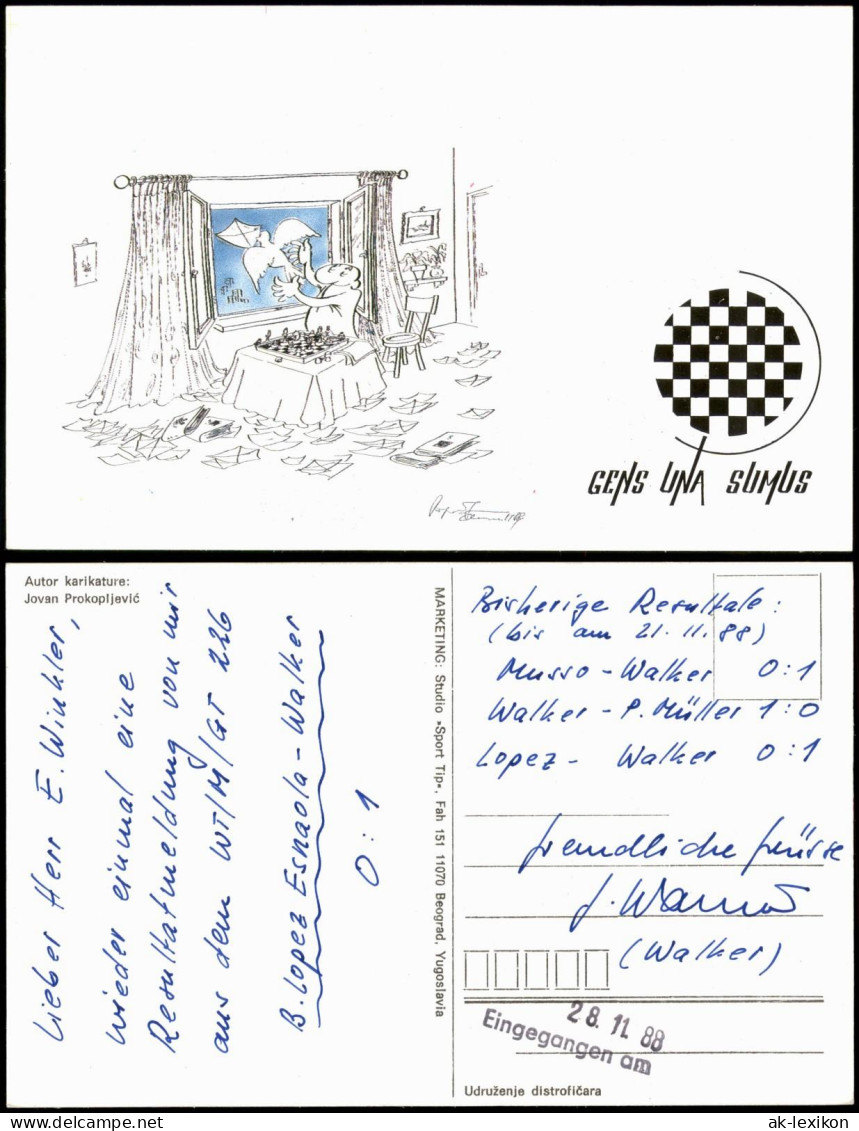 GENS UNA SUMUS
Autor karikature:
Jovan Prokopljević
Lieber Herr E. Winkler,
wieder einmal eine
Resultatmeldung von mir
aus dem WT/M/GT 226
B. Lopez Esnaola - Walker
0 : 1
MARKETING: Studio »Sport Tip«, Fah 151 11070 Beograd, Yugoslavia
Bisherige Resultate :
(bis am 21.11.88)
Musso - Walker 0 : 1
Walker - P. Müller 1 : 0
Lopez - Walker 0 : 1
freundliche Grüsse
(Walker)
28. 11. 88
Eingegangen am
Udruženje distrofičara
www.delcampe.net
ak-lexikon